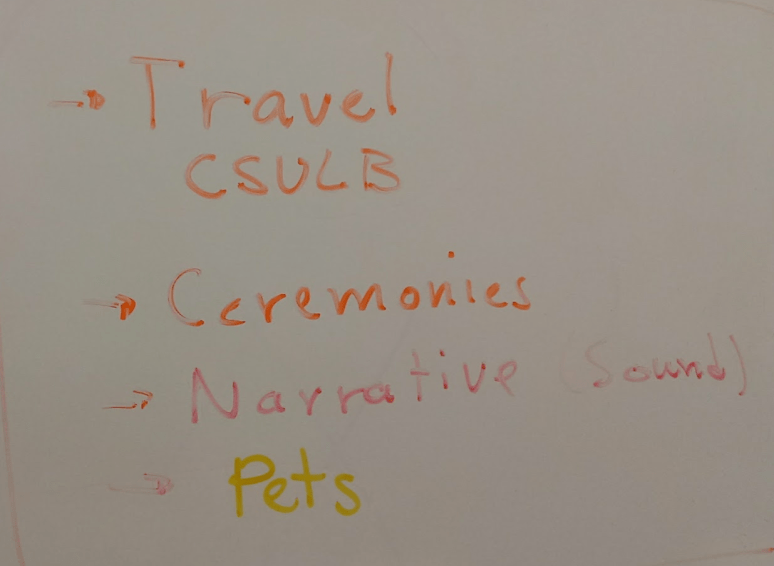 → Travel
CSULB
→ Ceremonies
→ Narrative (Sound)
→ Pets